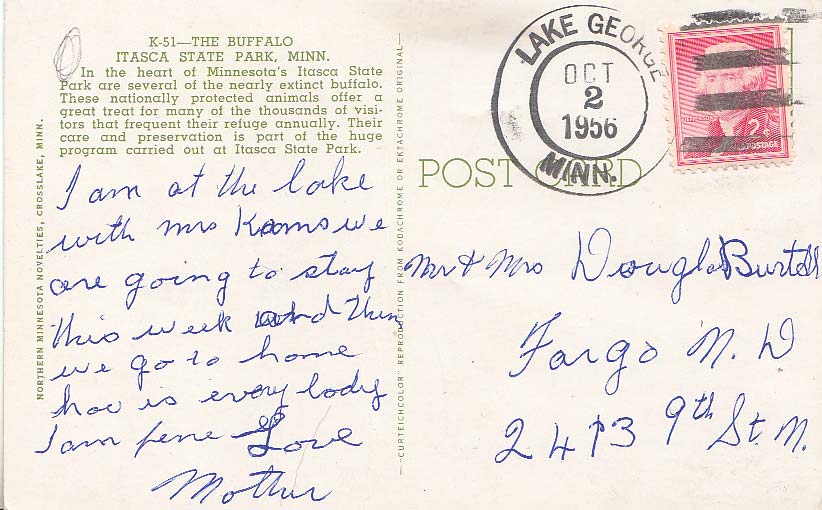 K-51—THE BUFFALO
ITASCA STATE PARK, MINN.
In the heart of Minnesota's Itasca State
Park are several of the nearly extinct buffalo.
These nationally protected animals offer a
great treat for many of the thousands of visi-
tors that frequent their refuge annually. Their
care and preservation is part of the huge
program carried out at Itasca State Park.
I am at the lake
with mrs we
are going to stay
this week and then
we go to home
hoc is every body
I am fene Love
Mother
NORTHERN MINNESOTA NOVELTIES, CROSSLAKE, MINN.
"CURTEICHCOLOR" REPRODUCTION FROM KODACHROME OR EKTACHROME ORIGINAL
LAKE GEORGE
OCT
2
1956
MINN.
2¢
POSTAGE
POST CARD
Mr & Mrs Douglas
Fargo N. D
2413 9th St. N.